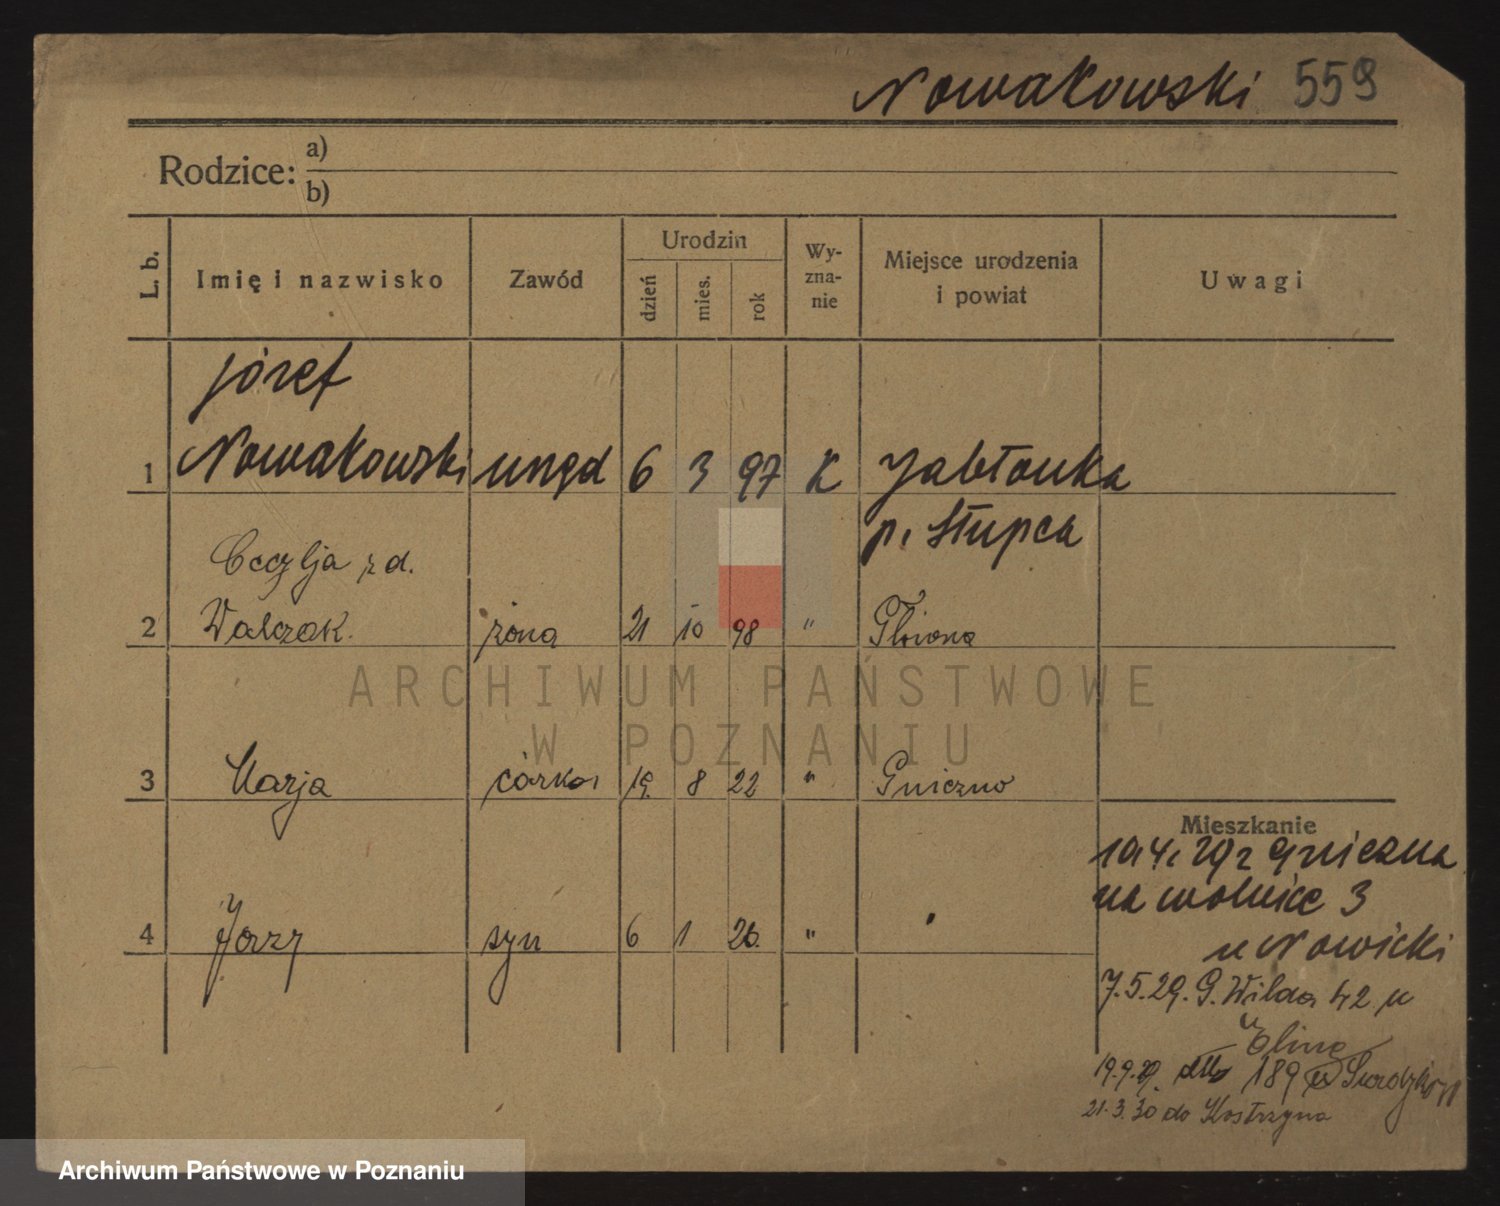 Nowakowski 559
Rodzice: a)
b)
L. b. Imię i nazwisko Zawód Urodzin dzień mies. rok Wy-zna-nie Miejsce urodzenia i powiat Uwagi
Józef
1 Nowakowski urzęd 6 3 97 K Jabłonka
p. Słupca
Cecylja z d.
2 Walczak. żona 21 10 98 "
3 Marja córka 19. 8 22 " Gniezno
Mieszkanie
10.4.29 z Gniezna
na Wolnice 3
4 Jerzy syn 6 1 26. " "
u Nowicki
7.5.29. G. Wilda 42 u
19.9.29. dtto 189 u
21.3.30 do Kostrzyna
ARCHIWUM PAŃSTWOWE
W POZNANIU
Archiwum Państwowe w Poznaniu